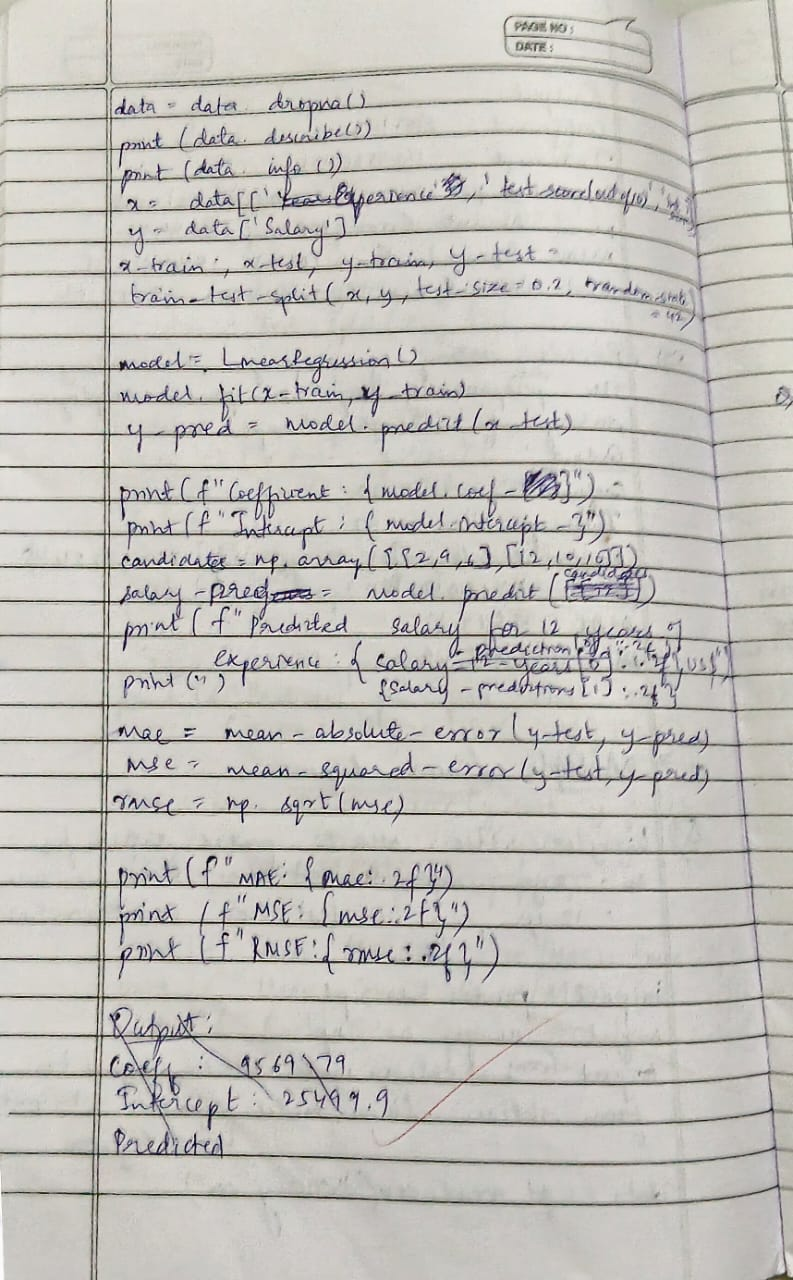 PAGE NO:
DATE:
data = data. dropna()
print (data. describe())
print (data. info ())
x = data[['Experience', 'test score(out of 10)',
y = data ['Salary']
x-train, x-test, y-train, y-test =
train-test-split( x, y, test-size = 0.2, random-state
= 42)
model = LinearRegression ()
model. fit(x-train, y-train)
y-pred = model. predict (x-test)
print (f" Coefficient : {model. coef-}")
print (f" Intercept : { model. intercept-}")
candidates = np. array ([[2,9,6], [12,10,10]])
salary-pred = model. predict (candidates)
print (f" Predicted salary for 12 years of
experience : { salary-prediction [0] : .2f}
print (" ) {salary-predictions [1] : .2f}
mae = mean-absolute-error (y-test, y-pred)
mse = mean-squared-error (y-test, y-pred)
rmse = np. sqrt (mse)
print (f" MAE: {mae: .2f}")
print (f" MSE: {mse:.2f}")
print (f" RMSE: { rmse : .2f}")
Output :
Coeff : 9569 79
Intercept : 25499.9
Predicted